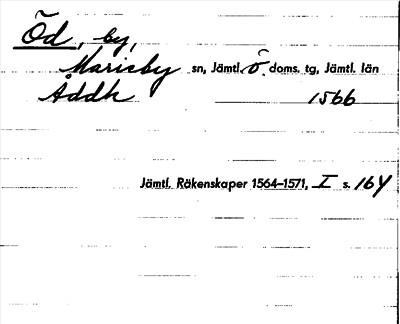 Öd, by,
Marieby sn, Jämtl. Ö. doms. tg, Jämtl. län
Åddh 1566
Jämtl. Räkenskaper 1564–1571, I s. 164